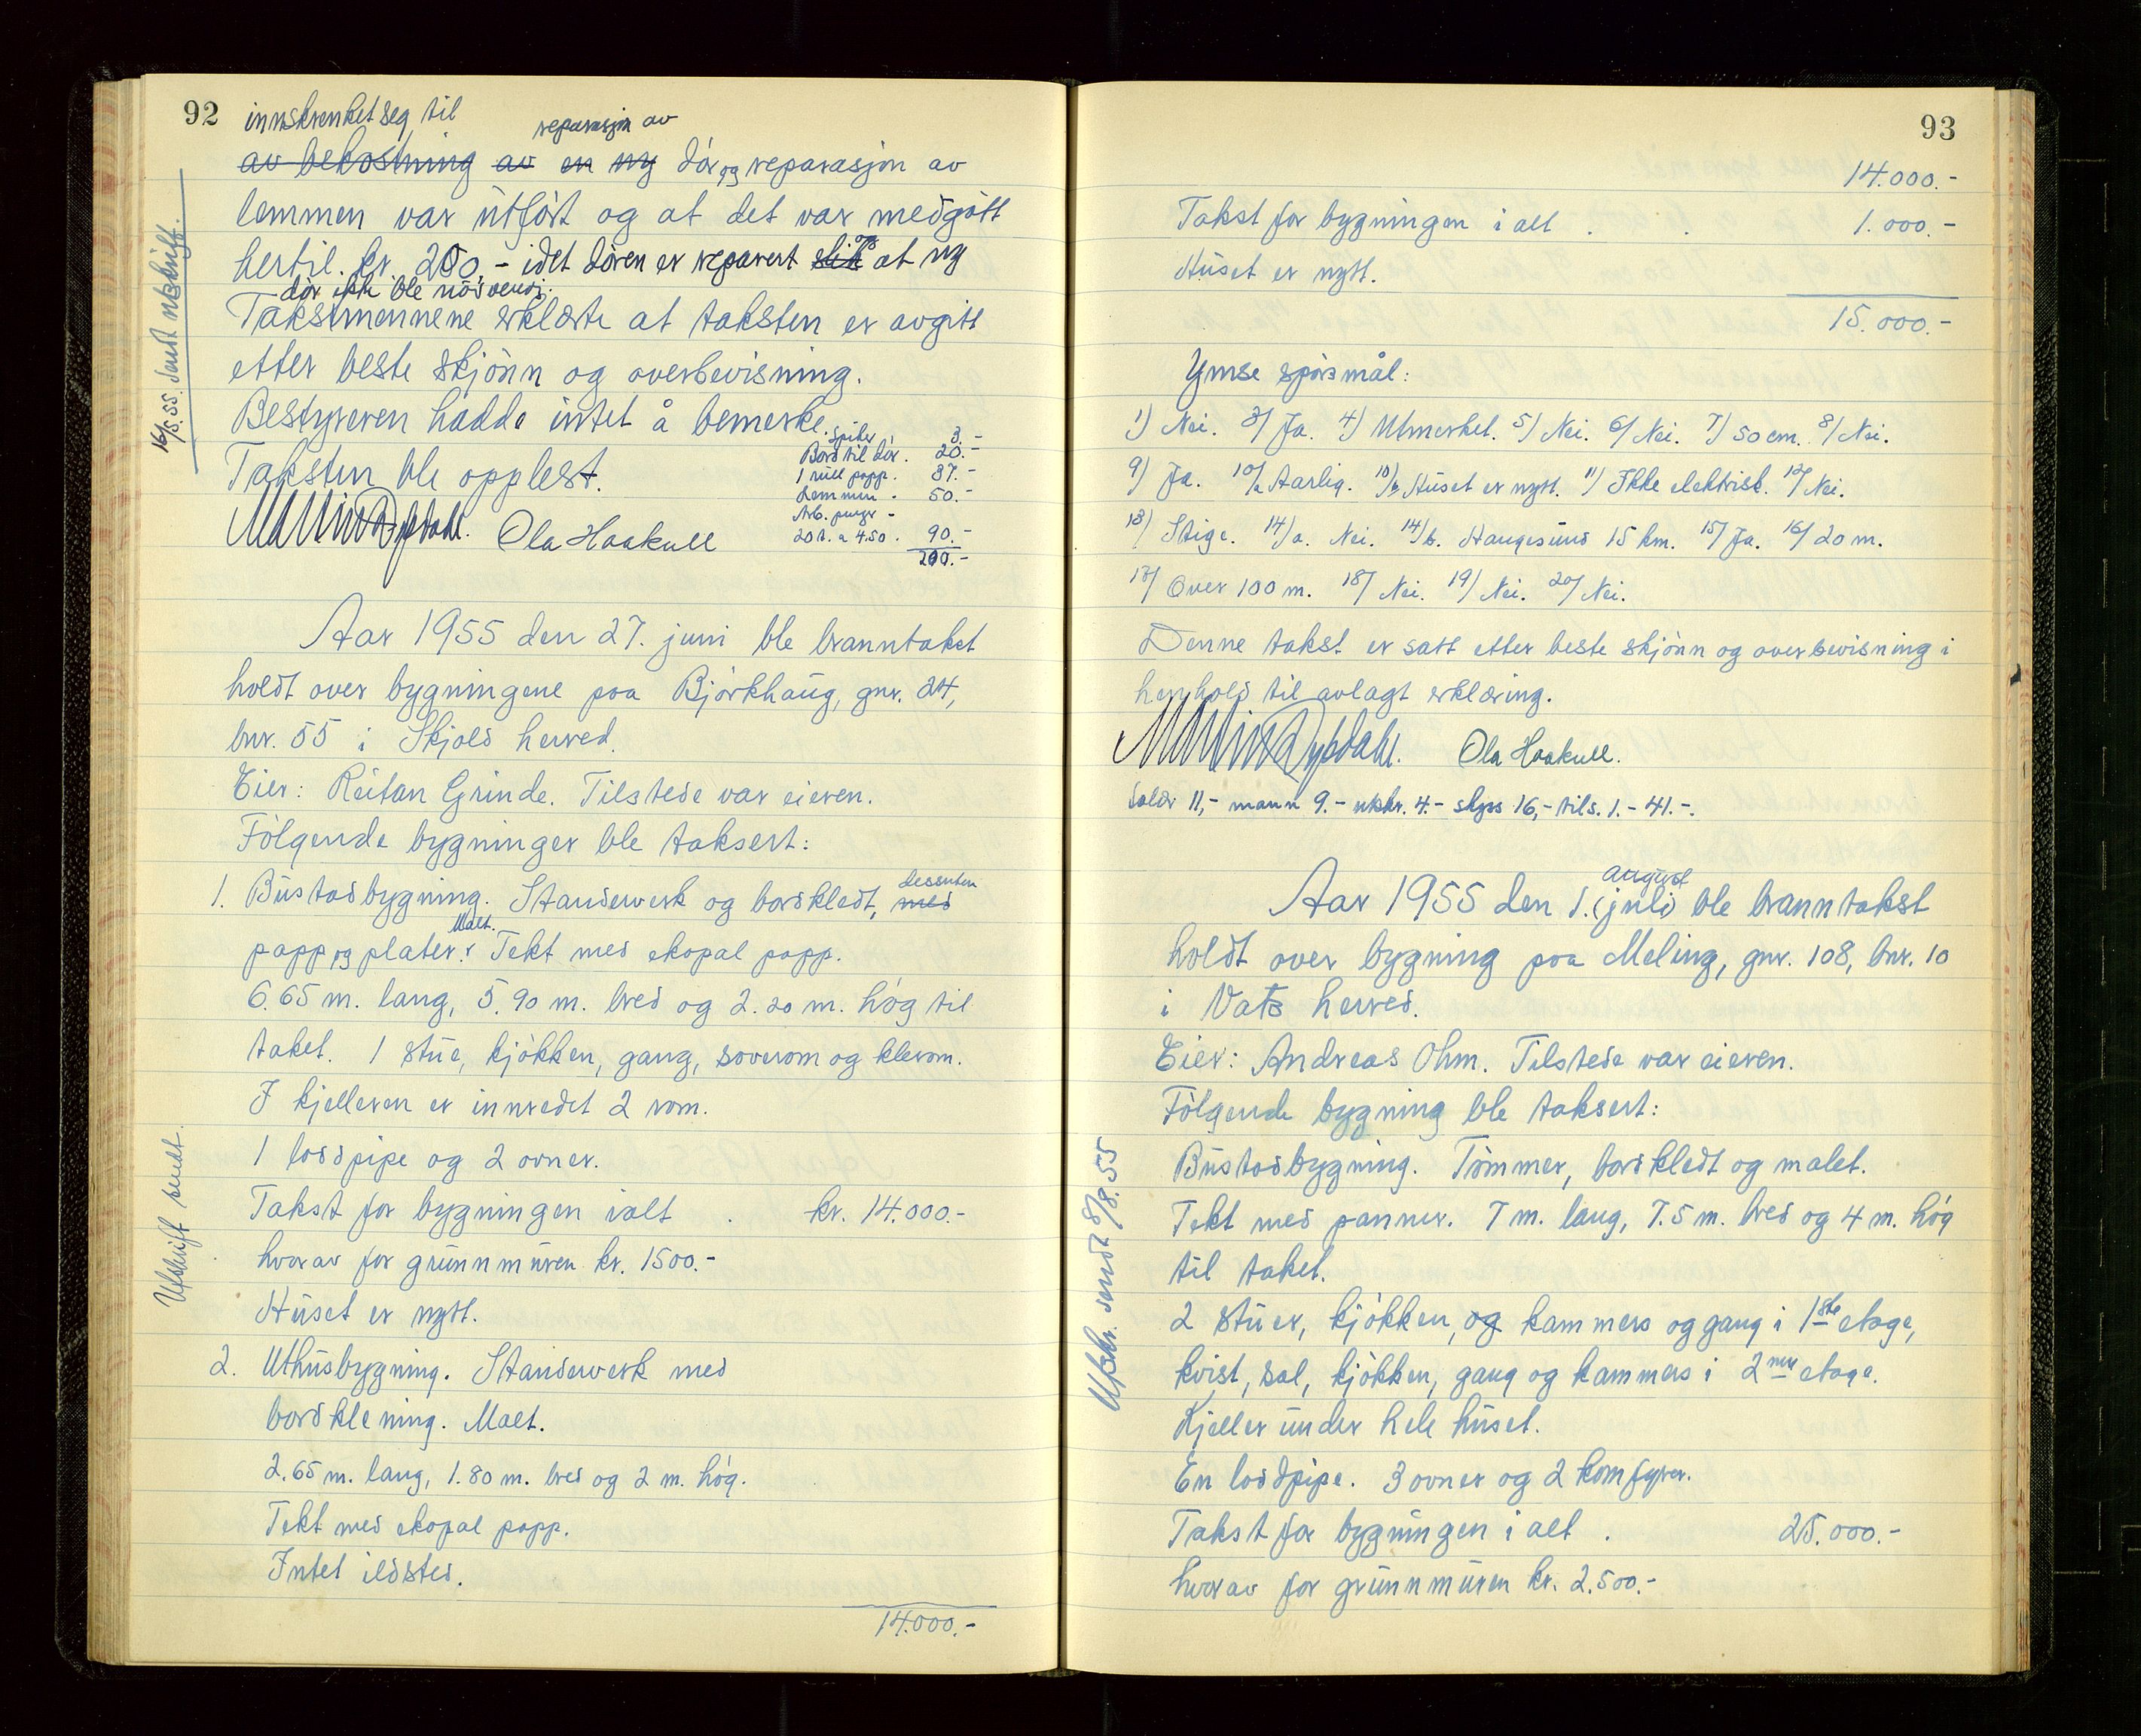 92
innskrenket seg til
reparasjon av
av bekostning av en ny dör og reparasjon av
lemmen var utfört og at det var medgått
hertil kr. 200.- idet dören er reparert slik at ny
dör ikke ble nödvendi.
Takstmennene erklærte at taksten er avgitt
etter beste skjönn og overbevisning.
Bestyreren hadde intet å bemerke.
Taksten ble opplest.
Spiker 3.-
Bord til dör. 20.-
1 rull papp. 37.-
Lemmen - 50.-
Arb. penger -
20 t. a 4.50. 90.-
200.-
Martin Dypdahl. Ola Haakull
16/5.55. sendt utskrift.
Aar 1955 den 27. juni ble branntakst
holdt over bygningene paa Björkhaug, gnr. 24,
bnr. 55 i Skjold herred.
Eier: Reitan Grinde. Tilstede var eieren.
Fölgende bygninger ble taksert:
1. Bustadbygning. Standerverk og bordkledt, med dessuten
papp og plater. Malt. Tekt med ekopal papp.
6.65 m. lang, 5.90 m. bred og 2.20 m. hög til
taket. 1 stue, kjökken, gang, soverom og klerom.
I kjelleren er innredet 2 rom.
1 loddpipe og 2 ovner.
Takst for bygningen ialt . kr. 14.000.-
hvorav for grunnmuren kr. 1500.-
Huset er nytt.
Utskrift sendt.
2. Uthusbygning. Standerverk med
bordkledning. Malt.
2.65 m. lang, 1.80 m. bred og 2 m. hög.
Tekt med ekopal papp.
Intet ildsted.
14.000.-
93
14.000.-
Takst for bygningen i alt . . 1.000.-
Huset er nytt.
15.000.-
Ymse spörsmål:
1) Nei. 3/ Ja. 4) Utmerket. 5/ Nei. 6/ Nei. 7/ 50 cm. 8/ Nei.
9) Ja. 10/a Aarlig. 10/b Huset er nytt. 11) Ikke elektrisk. 12/ Nei.
13) Stige. 14/a. Nei. 14/b. Haugesund 15 km. 15/ Ja. 16/ 20 m.
17/ Over 100 m. 18/ Nei. 19/ Nei. 20/ Nei.
Denne takst er satt etter beste skjönn og overbevisning i
henhold til avlagt erklæring.
Martin Dypdahl. Ola Haakull.
Salær 11,- mann 9.- utskr. 4.- skyss 16,- tils. 1.- 41.-.
august
Aar 1955 den 1. (juli) ble branntakst
holdt over bygning paa Meling, gnr. 108, bnr. 10
i Vats herred.
Eier: Andreas Ohm. Tilstede var eieren.
Fölgende bygning ble taksert:
Bustadbygning. Tömmer, bordkledt og malet.
Tekt med panner. 7 m. lang, 7.5 m. bred og 4 m. hög
til taket.
2 stuer, kjökken, og kammers og gang i 1ste etage,
kvist, sal, kjökken, gang og kammers i 2nen etage.
Kjeller under hele huset.
En loddpipe. 3 ovner og 2 komfyrer.
Takst for bygningen i alt . 25.000.-
hvorav for grunnmuren kr. 2.500.-
Utskr. sendt 8/8.55